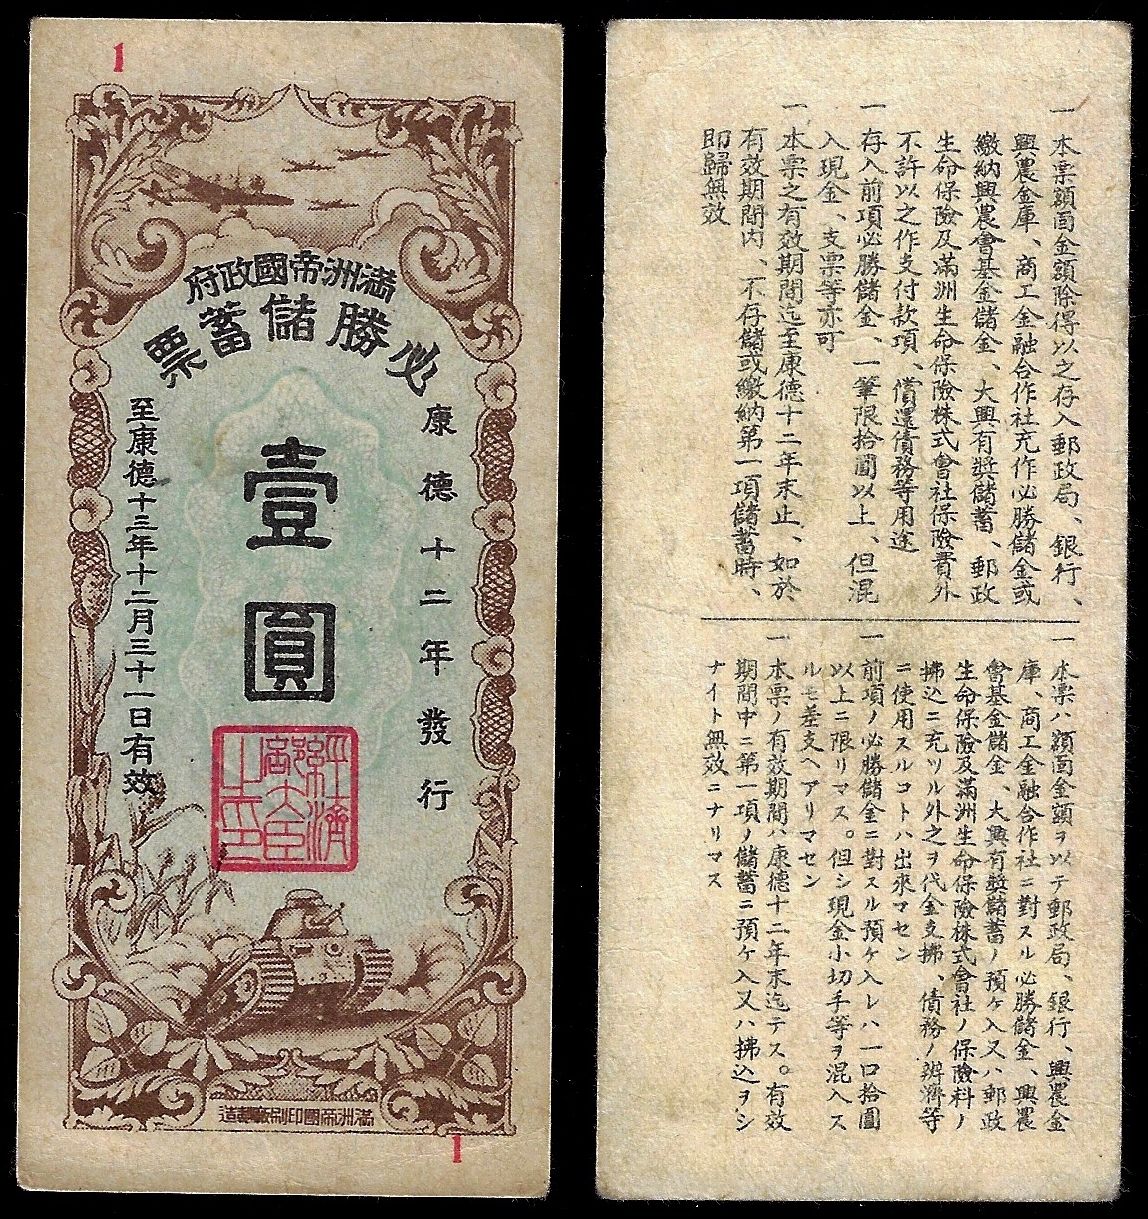 1
滿洲帝國政府
必勝儲蓄票
康德十二年發行
壹圓
至康德十三年十二月三十一日有效
經濟部大臣之印
滿洲帝國印刷廠製造
1
一 本票額面金額除得以之存入郵政局、銀行、
興農金庫、商工金融合作社充作必勝儲金或
繳納興農會基金儲金、大興有獎儲蓄、郵政
生命保險及滿洲生命保險株式會社保險費外
不許以之作支付款項、償還債務等用途
一 存入前項必勝儲金、一筆限拾圓以上、但混
入現金、支票等亦可
一 本票之有效期間迄至康德十二年末止、如於
有效期間內、不存儲或繳納第一項儲蓄時、
即歸無效
一 本票ハ額面金額ヲ以テ郵政局、銀行、興農金
庫、商工金融合作社ニ對スル必勝儲金、興農
會基金儲金、大興有獎儲蓄ノ預ケ入又ハ郵政
生命保險及滿洲生命保險株式會社ノ保險料ノ
拂込ニ充ツル外之ヲ代金支拂、債務ノ辨濟等
ニ使用スルコトハ出來マセン
一 前項ノ必勝儲金ニ對スル預ケ入レハ一口拾圓
以上ニ限リマス。但シ現金小切手等ヲ混入ス
ルモ差支ヘアリマセン
一 本票ノ有效期間ハ康德十二年末迄テス。有效
期間中ニ第一項ノ儲蓄ニ預ケ入又ハ拂込ヲシ
ナイト無效ニナリマス